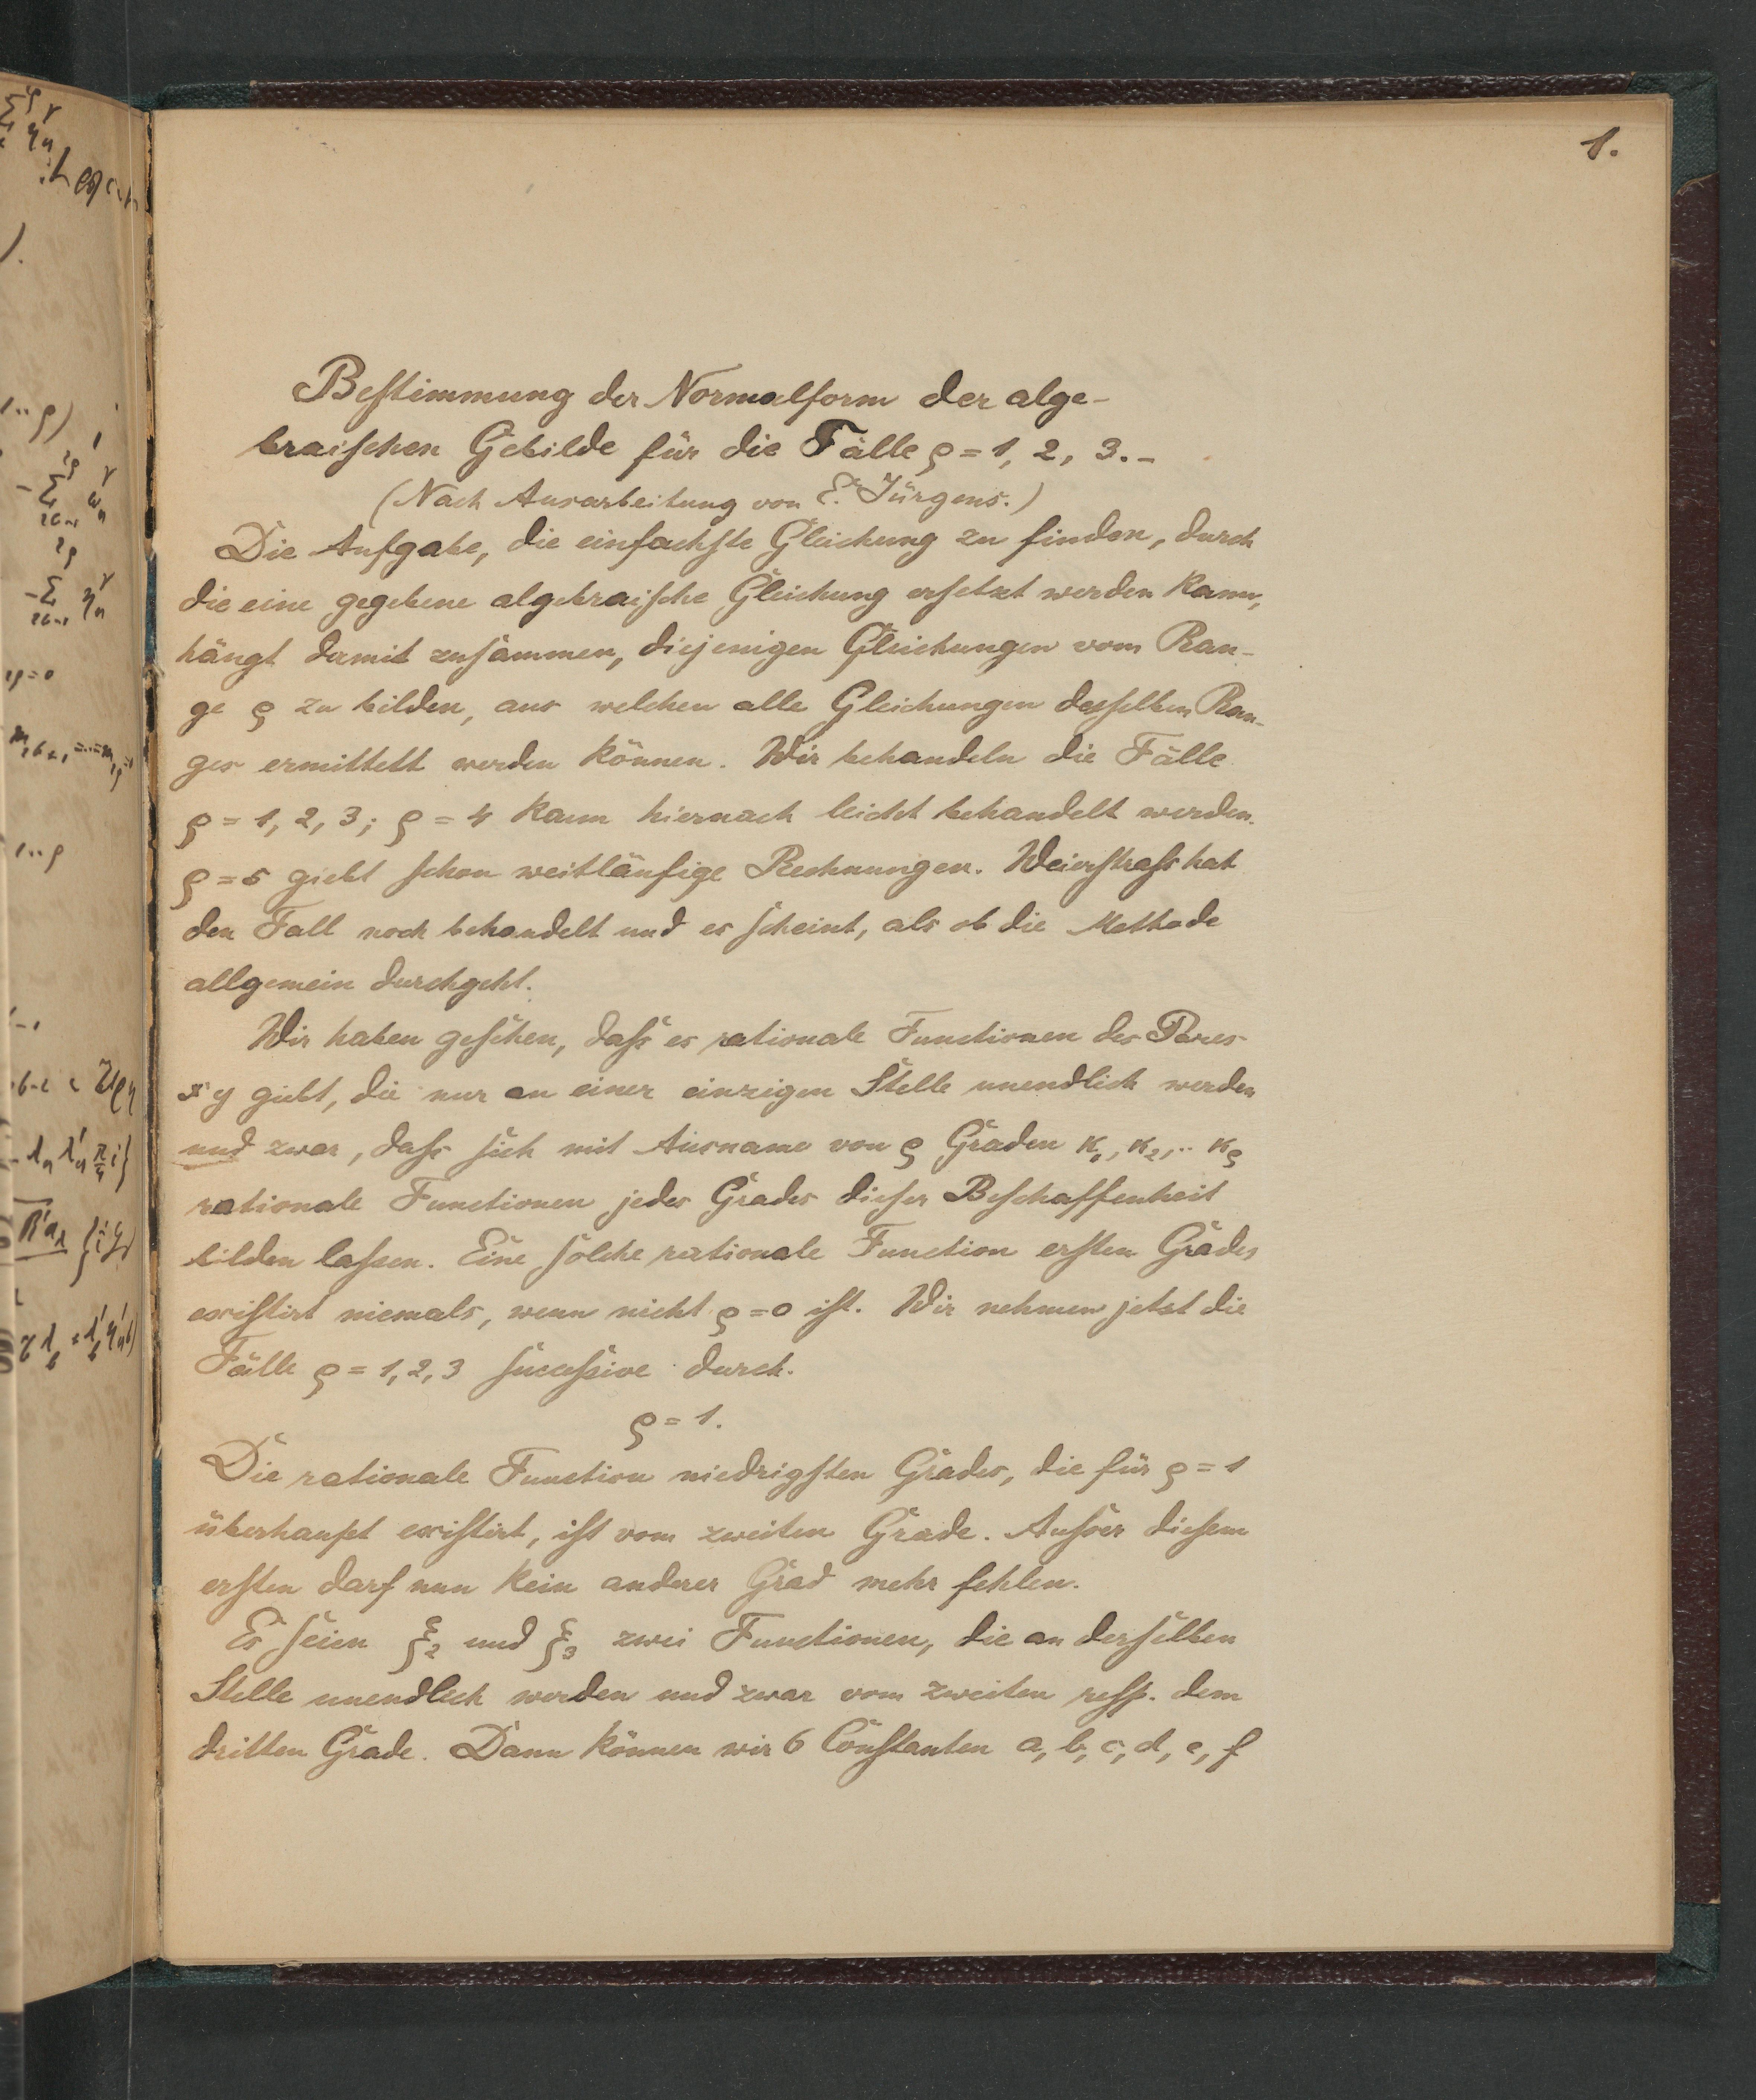 1.
Bestimmung der Normalform der alge-
braischen Gebilde für die Fälle ρ = 1, 2, 3. –
(Nach Ausarbeitung von E. Jürgens.)
Die Aufgabe, die einfachste Gleichung zu finden, durch
die eine gegebene algebraische Gleichung ersetzt werden kann,
hängt damit zusammen, diejenigen Gleichungen vom Ran-
ge ρ zu bilden, aus welchen alle Gleichungen desselben Ran-
ges ermittelt werden können. Wir behandeln die Fälle
ρ = 1, 2, 3; ρ = 4 kann hiernach leicht behandelt werden.
ρ = 5 giebt schon weitläufige Rechnungen. Weierstraß hat
den Fall noch behandelt und es scheint, als ob die Methode
allgemein durchgeht.
Wir haben gesehen, daß es rationale Functionen des Paares
xy giebt, die nur an einer einzigen Stelle unendlich werden
und zwar, dass sich mit Ausname von ρ Graden κ₁, κ₂, .. κρ
rationale Functionen jedes Grades dieser Beschaffenheit
bilden laßen. Eine solche rationale Function ersten Grades
existirt niemals, wenn nicht ρ = 0 ist. Wir nehmen jetzt die
Fälle ρ = 1, 2, 3 suceßive durch.
ρ = 1.
Die rationale Function niedrigsten Grades, die für ρ = 1
überhaupt existirt, ist vom zweiten Grade. Außer diesem
ersten darf nun kein anderer Grad mehr fehlen.
Es seien ξ₂ und ξ₃ zwei Functionen, die an derselben
Stelle unendlich werden und zwar vom zweiten resp. dem
dritten Grade. Dann können wir 6 Constanten a, b, c, d, e, f